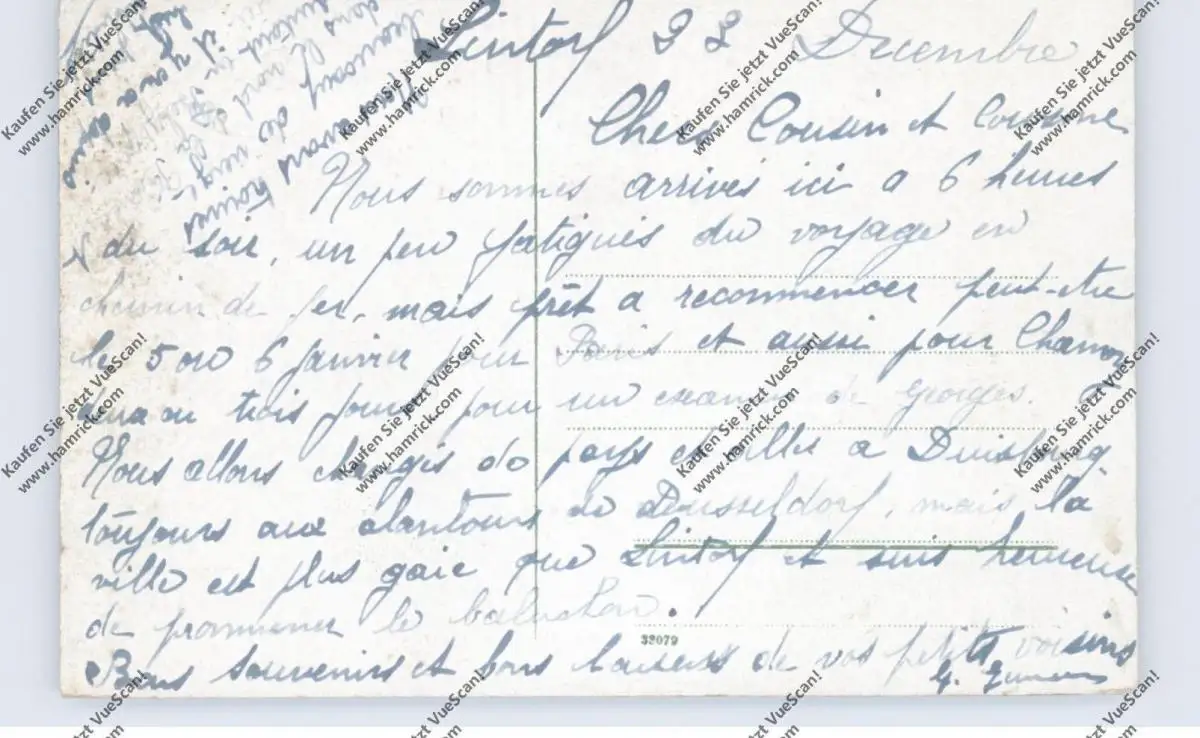 Lintorf 22 Decembre
Chers Cousin et Cousine
Nous sommes arrivés ici a 6 heures
du soir, un peu fatigués du voyage en
chemin de fer, mais prêt a recommencer peut-etre
le 5 ou 6 janvier pour Paris et aussi pour
deux ou trois jours pour un examen de Georges.
Nous allons changés de pays et aller a Duisburg
toujours aux alantours de Dusseldorf, mais la
ville est plus gaie que Lintorf et suis heureuse
de prommener le baluchon.
Bons souvenirs et bons baisers de vos petits voisins
G.
32079
Nous avons trouvés
beaucoup de neige
dans le nord
il y en a
Kaufen Sie jetzt VueScan!
www.hamrick.com